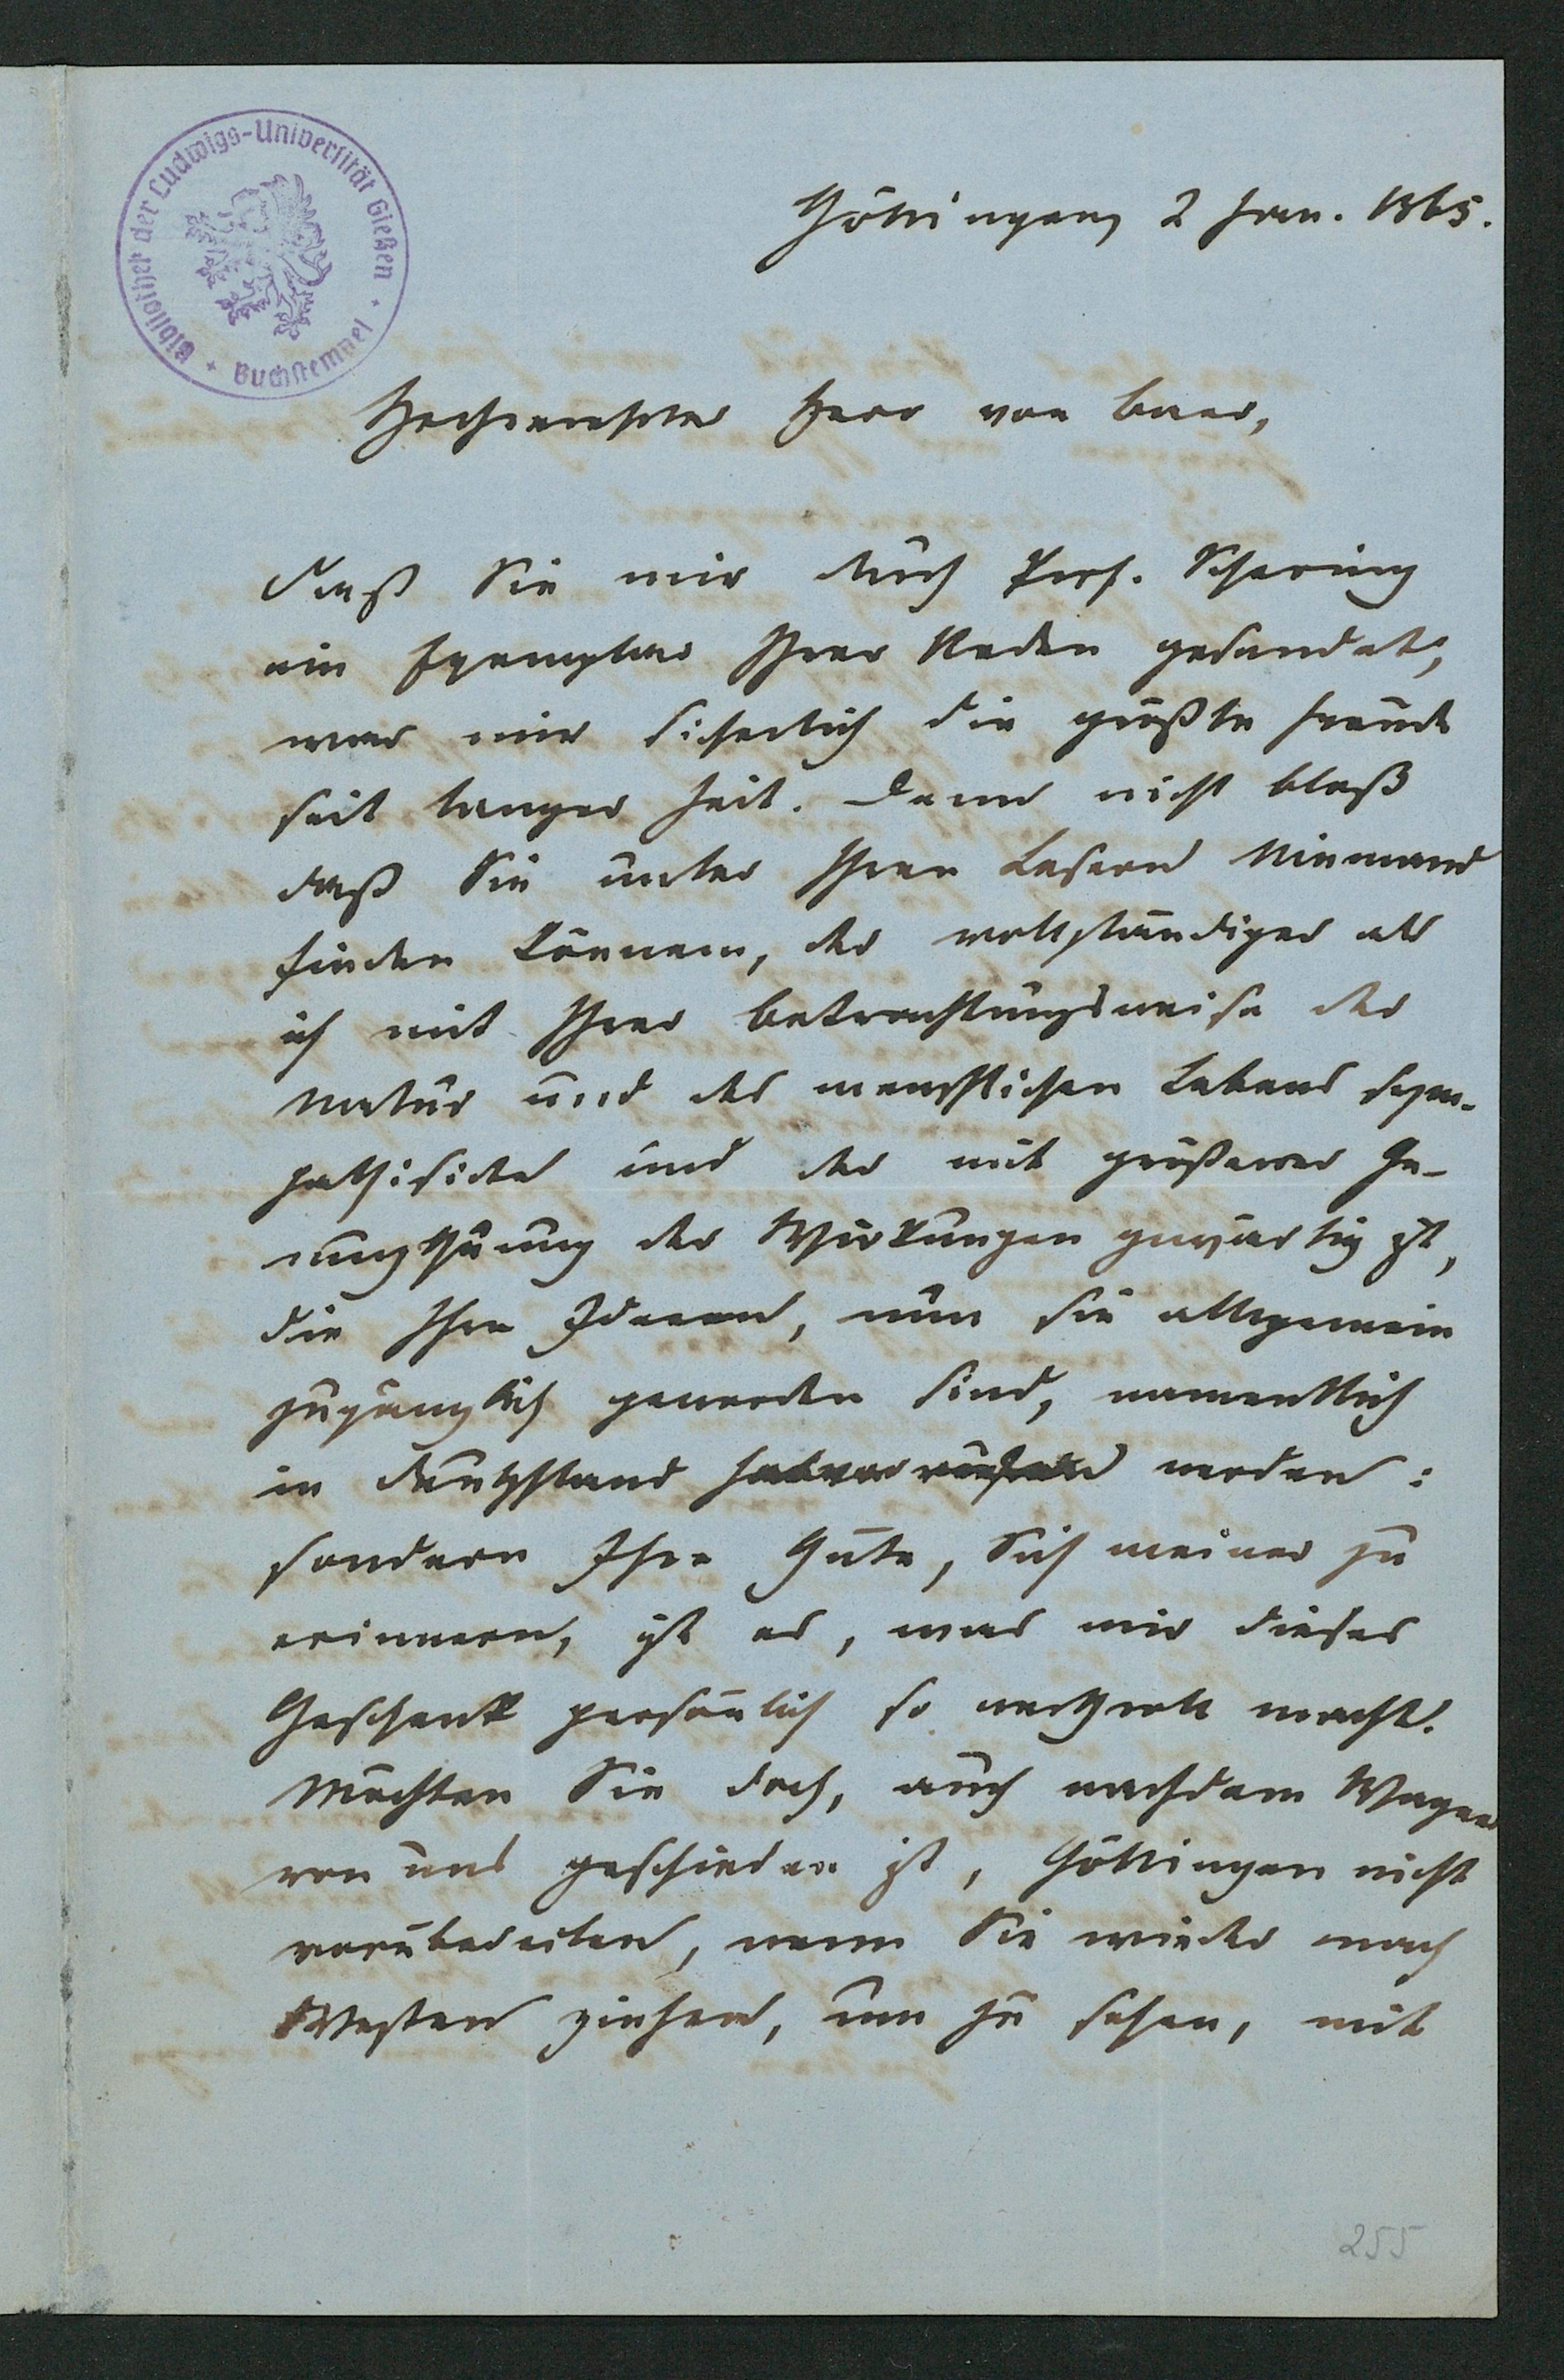 Bibliothek der Ludwigs-Universität Gießen
Buchstempel
Göttingen, 2 Jan. 1865.
Hochverehrter Herr von Baer,
Daß Sie mir durch Prof. Schering
ein Exemplar Ihrer Reden gesandet,
war mir sicherlich die größte Freude
seit langer Zeit. Denn nicht bloß
daß Sie unter Ihren Lesern Niemand
finden können, der vollständiger als
ich mit Ihrer Betrachtungsweise der
Natur und des menschlichen Lebens sym-
pathisirte und der mit größerer Ge-
nugthuung der Wirkungen gewärtig ist,
die Ihre Ideeen, nun sie allgemein
zugänglich geworden sind, namentlich
in Deutschland hervorrufen werden:
sondern Ihre Güte, Sich meiner zu
erinnern, ist es, was mir dieses
Geschenk persönlich so werthvoll macht.
Möchten Sie doch, auch nachdem Wagner
von uns geschieden ist, Göttingen nicht
vorübereilen, wenn Sie wieder nach
Westen ziehen, um zu sehen, mit
255